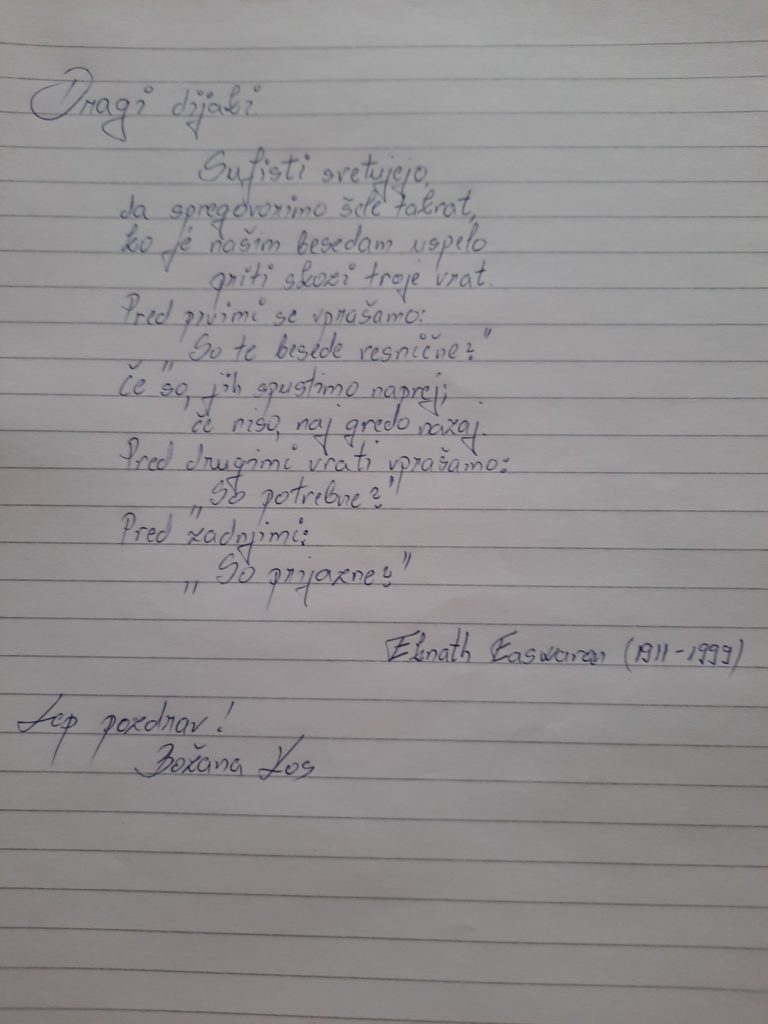 Dragi dijaki
Sufisti svetujejo,
da spregovorimo šele takrat,
ko je našim besedam uspelo
priti skozi troje vrat.
Pred prvimi se vprašamo:
„So te besede resnične?"
Če so, jih spustimo naprej;
če niso, naj gredo nazaj.
Pred drugimi vrati vprašamo:
„So potrebne?"
Pred zadnjimi:
„So prijazne?"
Eknath Easwaran (1911-1999)
Lep pozdrav!
Božana Kos